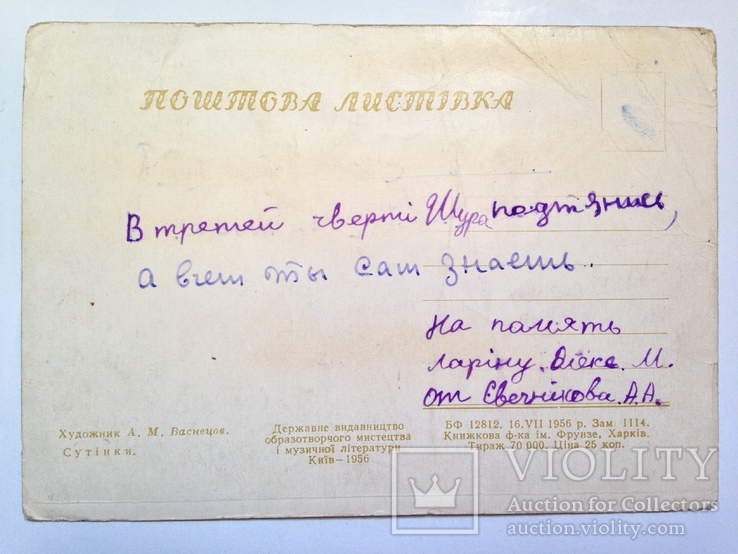 ПОШТОВА ЛИСТІВКА
В третей чверті Шура подтянись,
а в чем ты сам знаешь.
На память
Ларіну. Алекс. М.
от Свечнікова. А.А.
Художник А. М. Васнецов.
Сутінки.
Державне видавництво
образотворчого мистецтва
і музичної літератури
Київ—1956
БФ 12812. 16.VII 1956 р. Зам. 1114.
Книжкова ф-ка ім. Фрунзе, Харків.
Тираж 70 000. Ціна 25 коп.
VIOLITY
Auction for Collectors
auction.violity.com